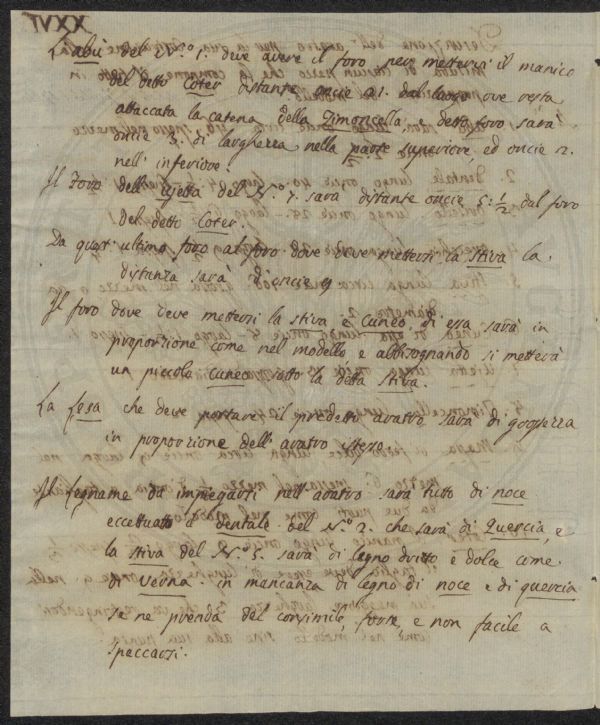 XXVI
Labù del N.º 1. deve avere il foro per mettersi il manico
del detto Coter distante oncie 21. dal luogo ove resta
attaccata la catena della Zimoncella, e detto foro sarà
oncie 3. di larghezza nella parte superiore, ed oncie 2.
nell' inferiore.
Il Foro dell' Ujetta del N.º 7. sarà distante oncie 5:½ dal foro
del detto Coter.
Da quest' ultimo foro al foro dove deve mettersi la Stiva la
distanza sarà d'oncie 9
Il foro dove deve mettersi la stiva e Cuneo di essa sarà in
proporzione come nel modello, e abbisognando si metterà
un piccolo Cuneo sotto la detta Stiva.
La Lesa che deve portare il predetto aratro sarà di grossezza
in proporzione dell' aratro stesso.
Il legname da impiegarsi nell' aratro sarà tutto di noce
eccettuato il dentale del N.º 2. che sarà di Quercia, e
la stiva del N.º 5. sarà di legno dritto e dolce come
di Verna. in mancanza di legno di noce e di quercia
se ne prenda del consimile, forte, e non facile a
speccarsi.